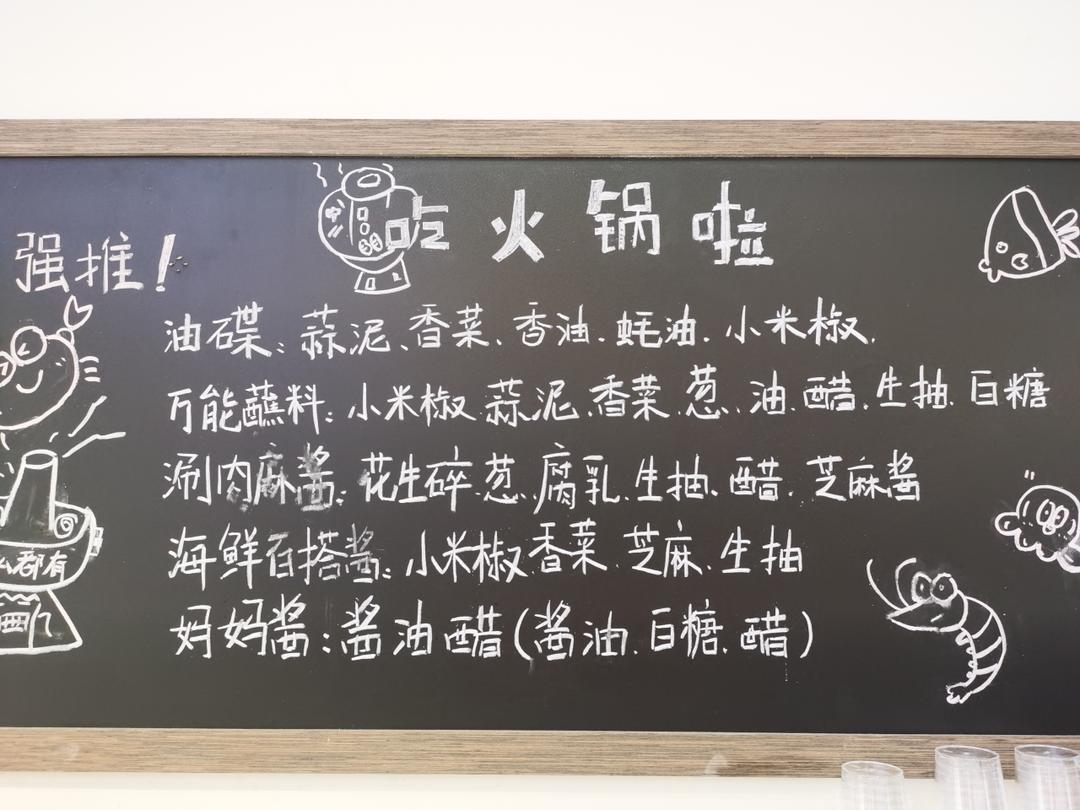 吃火锅啦
强推！
油碟：蒜泥、香菜、香油、蚝油、小米椒、
万能蘸料：小米椒、蒜泥、香菜、葱、油、醋、生抽、白糖
涮肉麻酱：花生碎、葱、腐乳、生抽、醋、芝麻酱
海鲜百搭酱：小米椒、香菜、芝麻、生抽
妈妈酱：酱油醋（酱油、白糖、醋）
都有